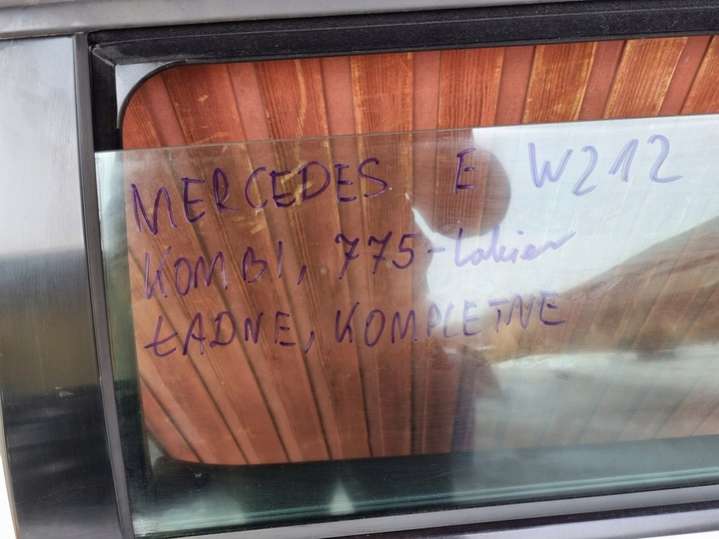 MERCEDES E W212
KOMBI, 775-Lakier
ŁADNE, KOMPLETNE